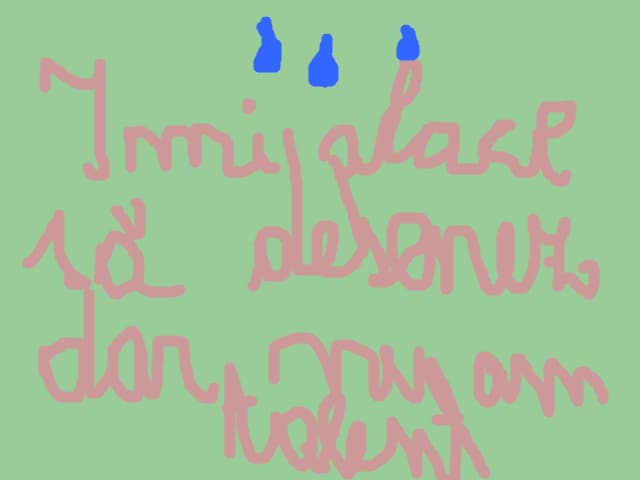 Imi place
să desenez
dar nu am
talent